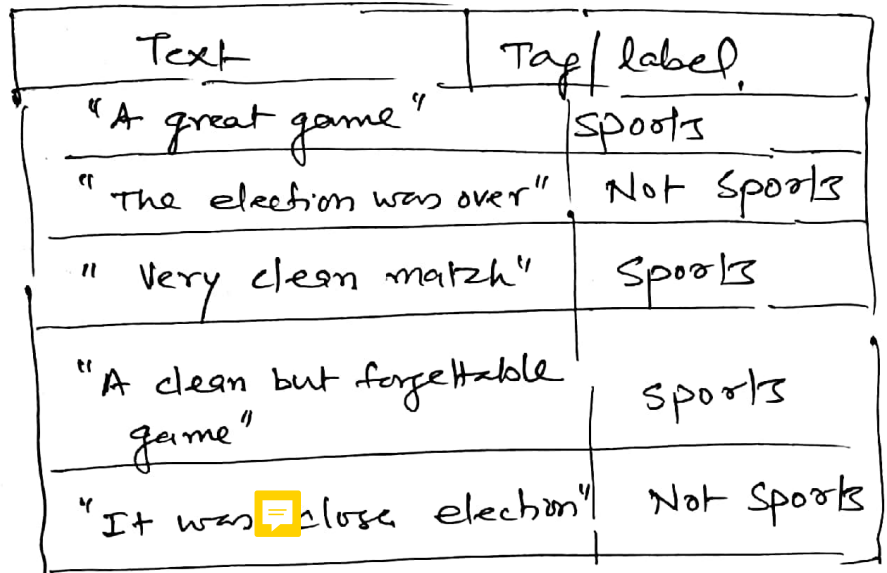 Text Tag/label.
"A great game" Sports
"The election was over" Not Sports
"Very clean match" Sports
"A clean but forgettable Sports
game"
"It was close election" Not Sports